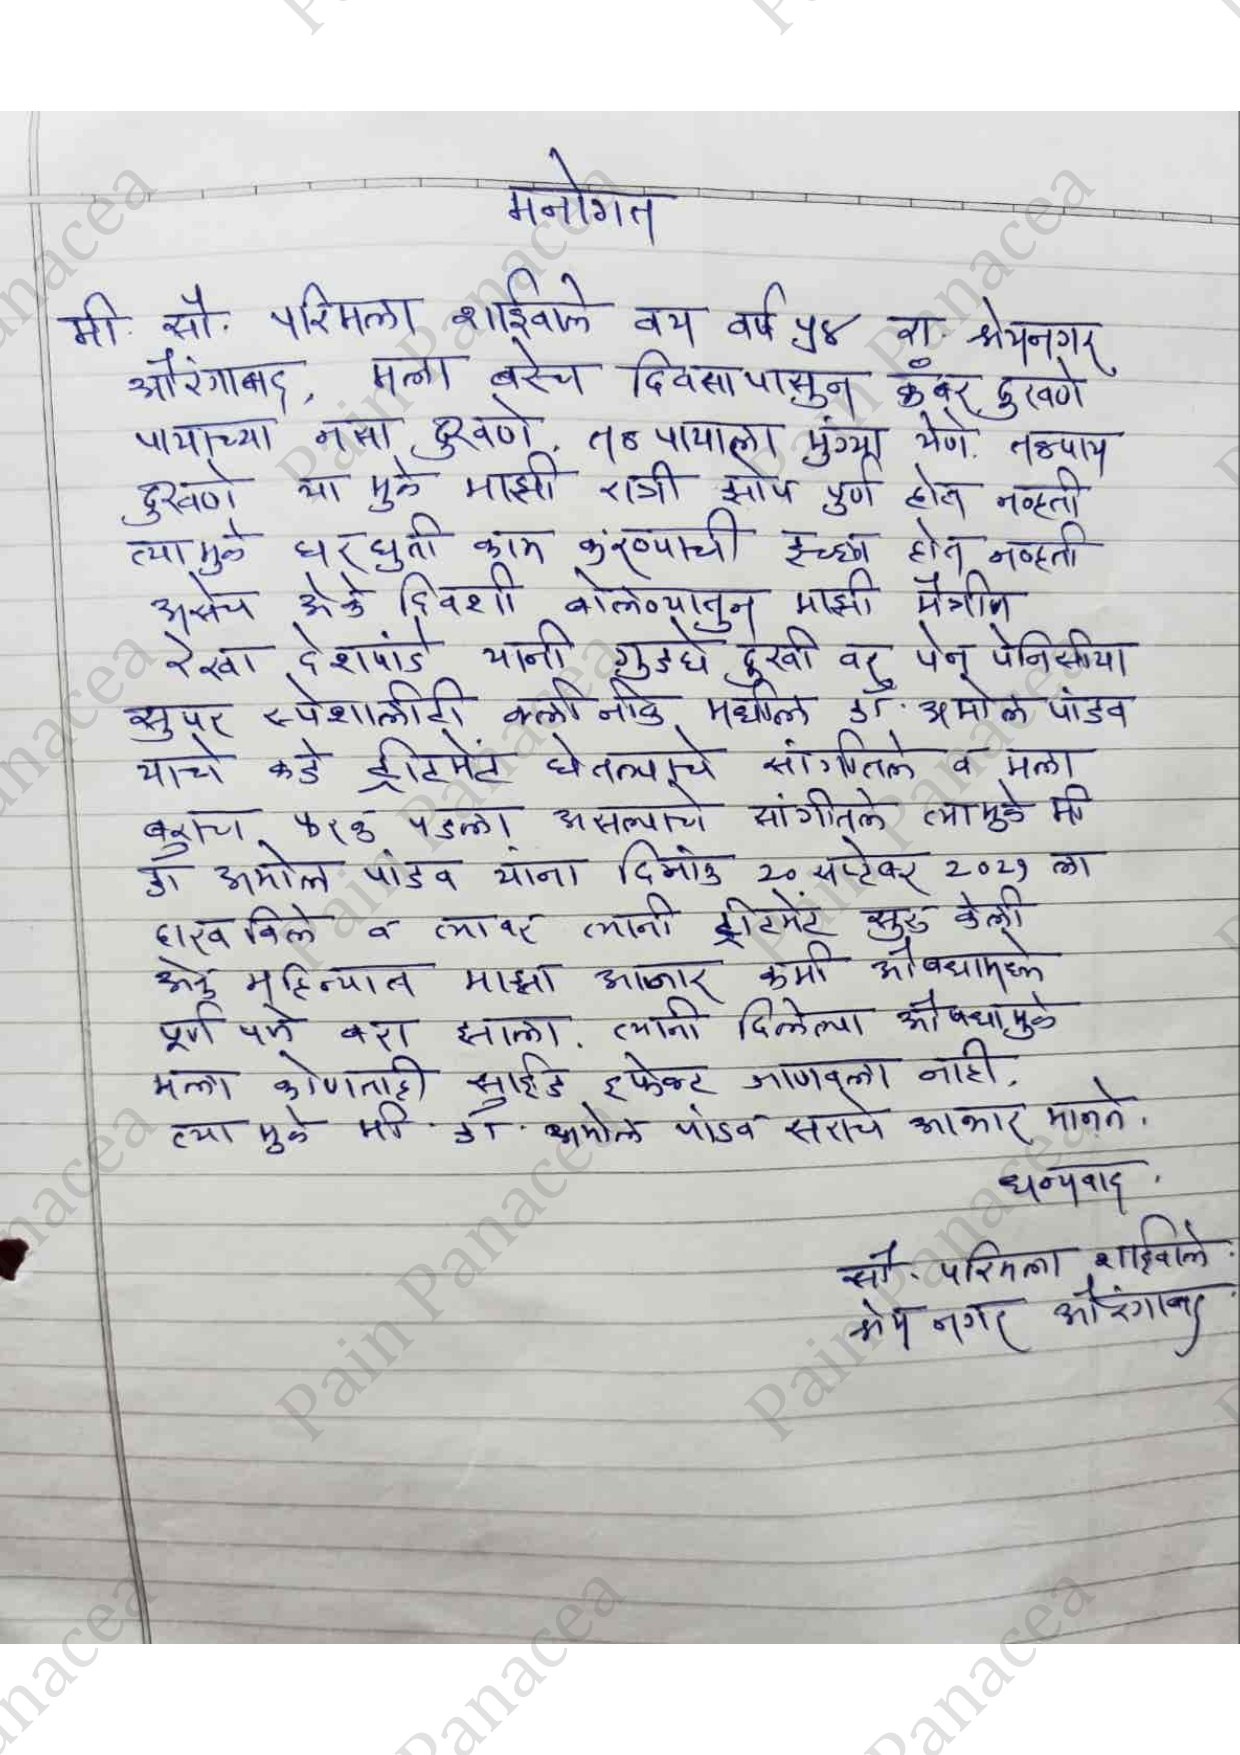 मनोगत
मी. सौ. परिमला शाईवाले वय वर्ष ५४ रा. श्रेयनगर
औरंगाबाद, मला बरेच दिवसापासुन कंबर दुखणे
पायाच्या नसा दुखणे, तळपायाला मुंग्या येणे. तळपाय
दुखणे या मुळे माझी रात्री झोप पुर्ण होत नव्हती
त्यामुळे घरघुती काम करण्याची इच्छा होत नव्हती
असेच ऐके दिवशी बोलण्यातुन माझी मैत्रीन
रेखा देशपांडे यानी गुडघे दुखी वर पेन पेनिसीया
सुपर स्पेशालीटी क्लीनीक मधील डॉ. अमोल पांडव
याचे कडे ट्रीटमेंट घेतल्याचे सांगीतले व मला
बराच फरक पडला असल्याचे सांगीतले त्यामुळे मी
डॉ अमोल पांडव यांना दिनांक २० सप्टेंबर २०२१ ला
दाखविले व त्यावर त्यानी ट्रीटमेंट सुरु केली
ऐक महिन्यात माझा आजार कमी औषधामध्ये
पूर्ण पणे बरा झाला. त्यानी दिलेल्या औषधामुळे
मला कोणताही साईड इफेक्ट जाणवला नाही.
त्या मुळे मी. डॉ. अमोल पांडव सराचे आभार मानते.
धन्यवाद.
सौ. परिमला शाईवाले.
श्रेय नगर औरंगाबाद.
Pain Panacea